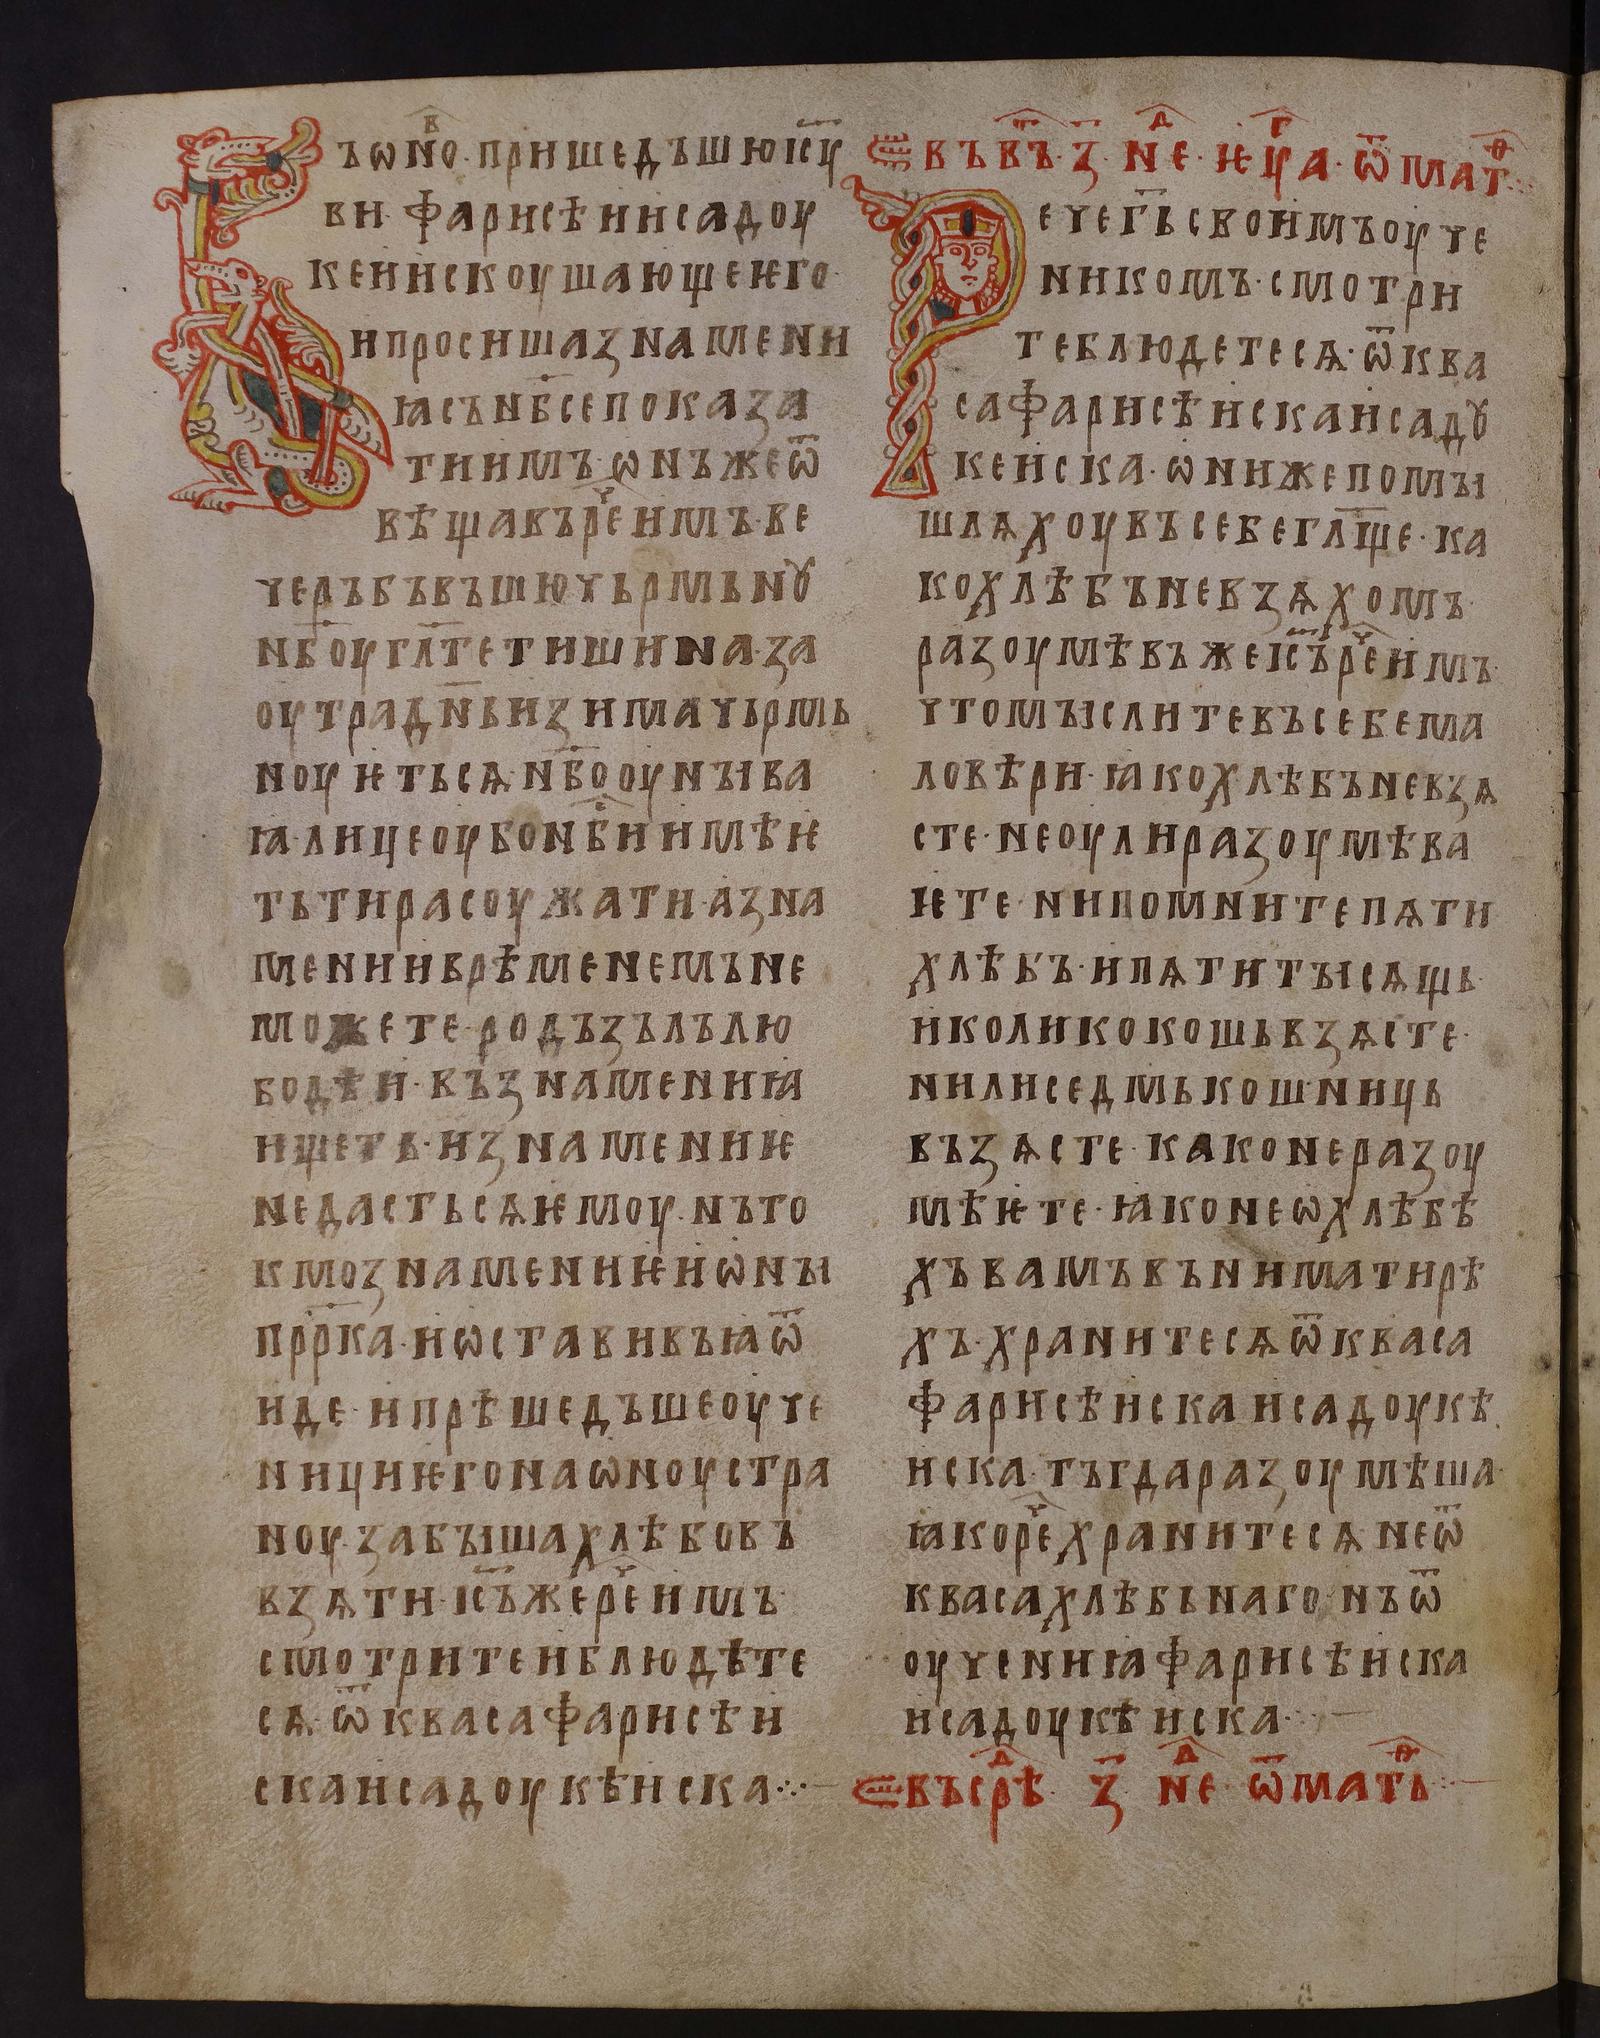 Въѡно·пришедъшюі҃су
ви·фарисѣиисадоу
кеиискоушающеѥго·
ипросишазнамени
ꙗсън҃бсепоказа
тиимъ·ѡнъжеѿ
вѣщавър҃еимъ·ве
черъбъвъшючьрмьнꙋ
н҃боуг҃лтетишина·за
оутрад҃ньизимачьрмь
ноуѥтьсѧ·н҃бооуныва
ꙗ·лицеоубон҃биимѣѥ
тьтирасоужати·азна
мениивременемъне
можете·родъзълълю
бодѣи·възнамениꙗ
ищеть·изнамениѥ
недастьсѧѥмоу·нъто
кмознамениѥиѡны
п҃ррка·иѡставивъꙗѿ
иде·ипрѣшедъшеоуче
нициѥгонаѡноустра
ноу·забышахлѣбовъ
взѧти·і҃съжер҃еимъ·
смотритеиблюдѣте
сѧ·ѿквасафарисѣи
скаисадоукѣиска·:·
Євъвъ·з҃·не·ѥуа·ѿмат҃
Речег҃ьсвоимъоуче
никомъ·смотри
теблюдетесѧ·ѿква
сафарисѣискаисадꙋ
кеиска·ѡнижепомы
шлѧхоувъсебег҃лще·ка
кохлѣбъневзѧхомъ·
разоумѣвъжеі҃сър҃еимъ·
чтомыслитевъсебема
ловѣри·ꙗкохлѣбъневзѧ
сте·неоулиразоумѣва
ѥте·нипомнитепѧти
хлѣбъ·ипѧтитысѧщь·
иколикокошьвзѧсте·
нилиседмькошниць
възѧсте·каконеразоу
мѣѥте·ꙗконеѡхлѣбѣ
хъвамъвъниматирѣ
хъ·хранитесѧѿкваса
фарисѣискаисадоукѣ
иска·тъгдаразоумѣша·
ꙗкор҃ехранитесѧнеѿ
квасахлѣбьнаго·нъѿ
оучениꙗфарисѣиска
исадоукѣиска·:·
Євъср҃е·з҃·не·ѿмат҃ь·:·